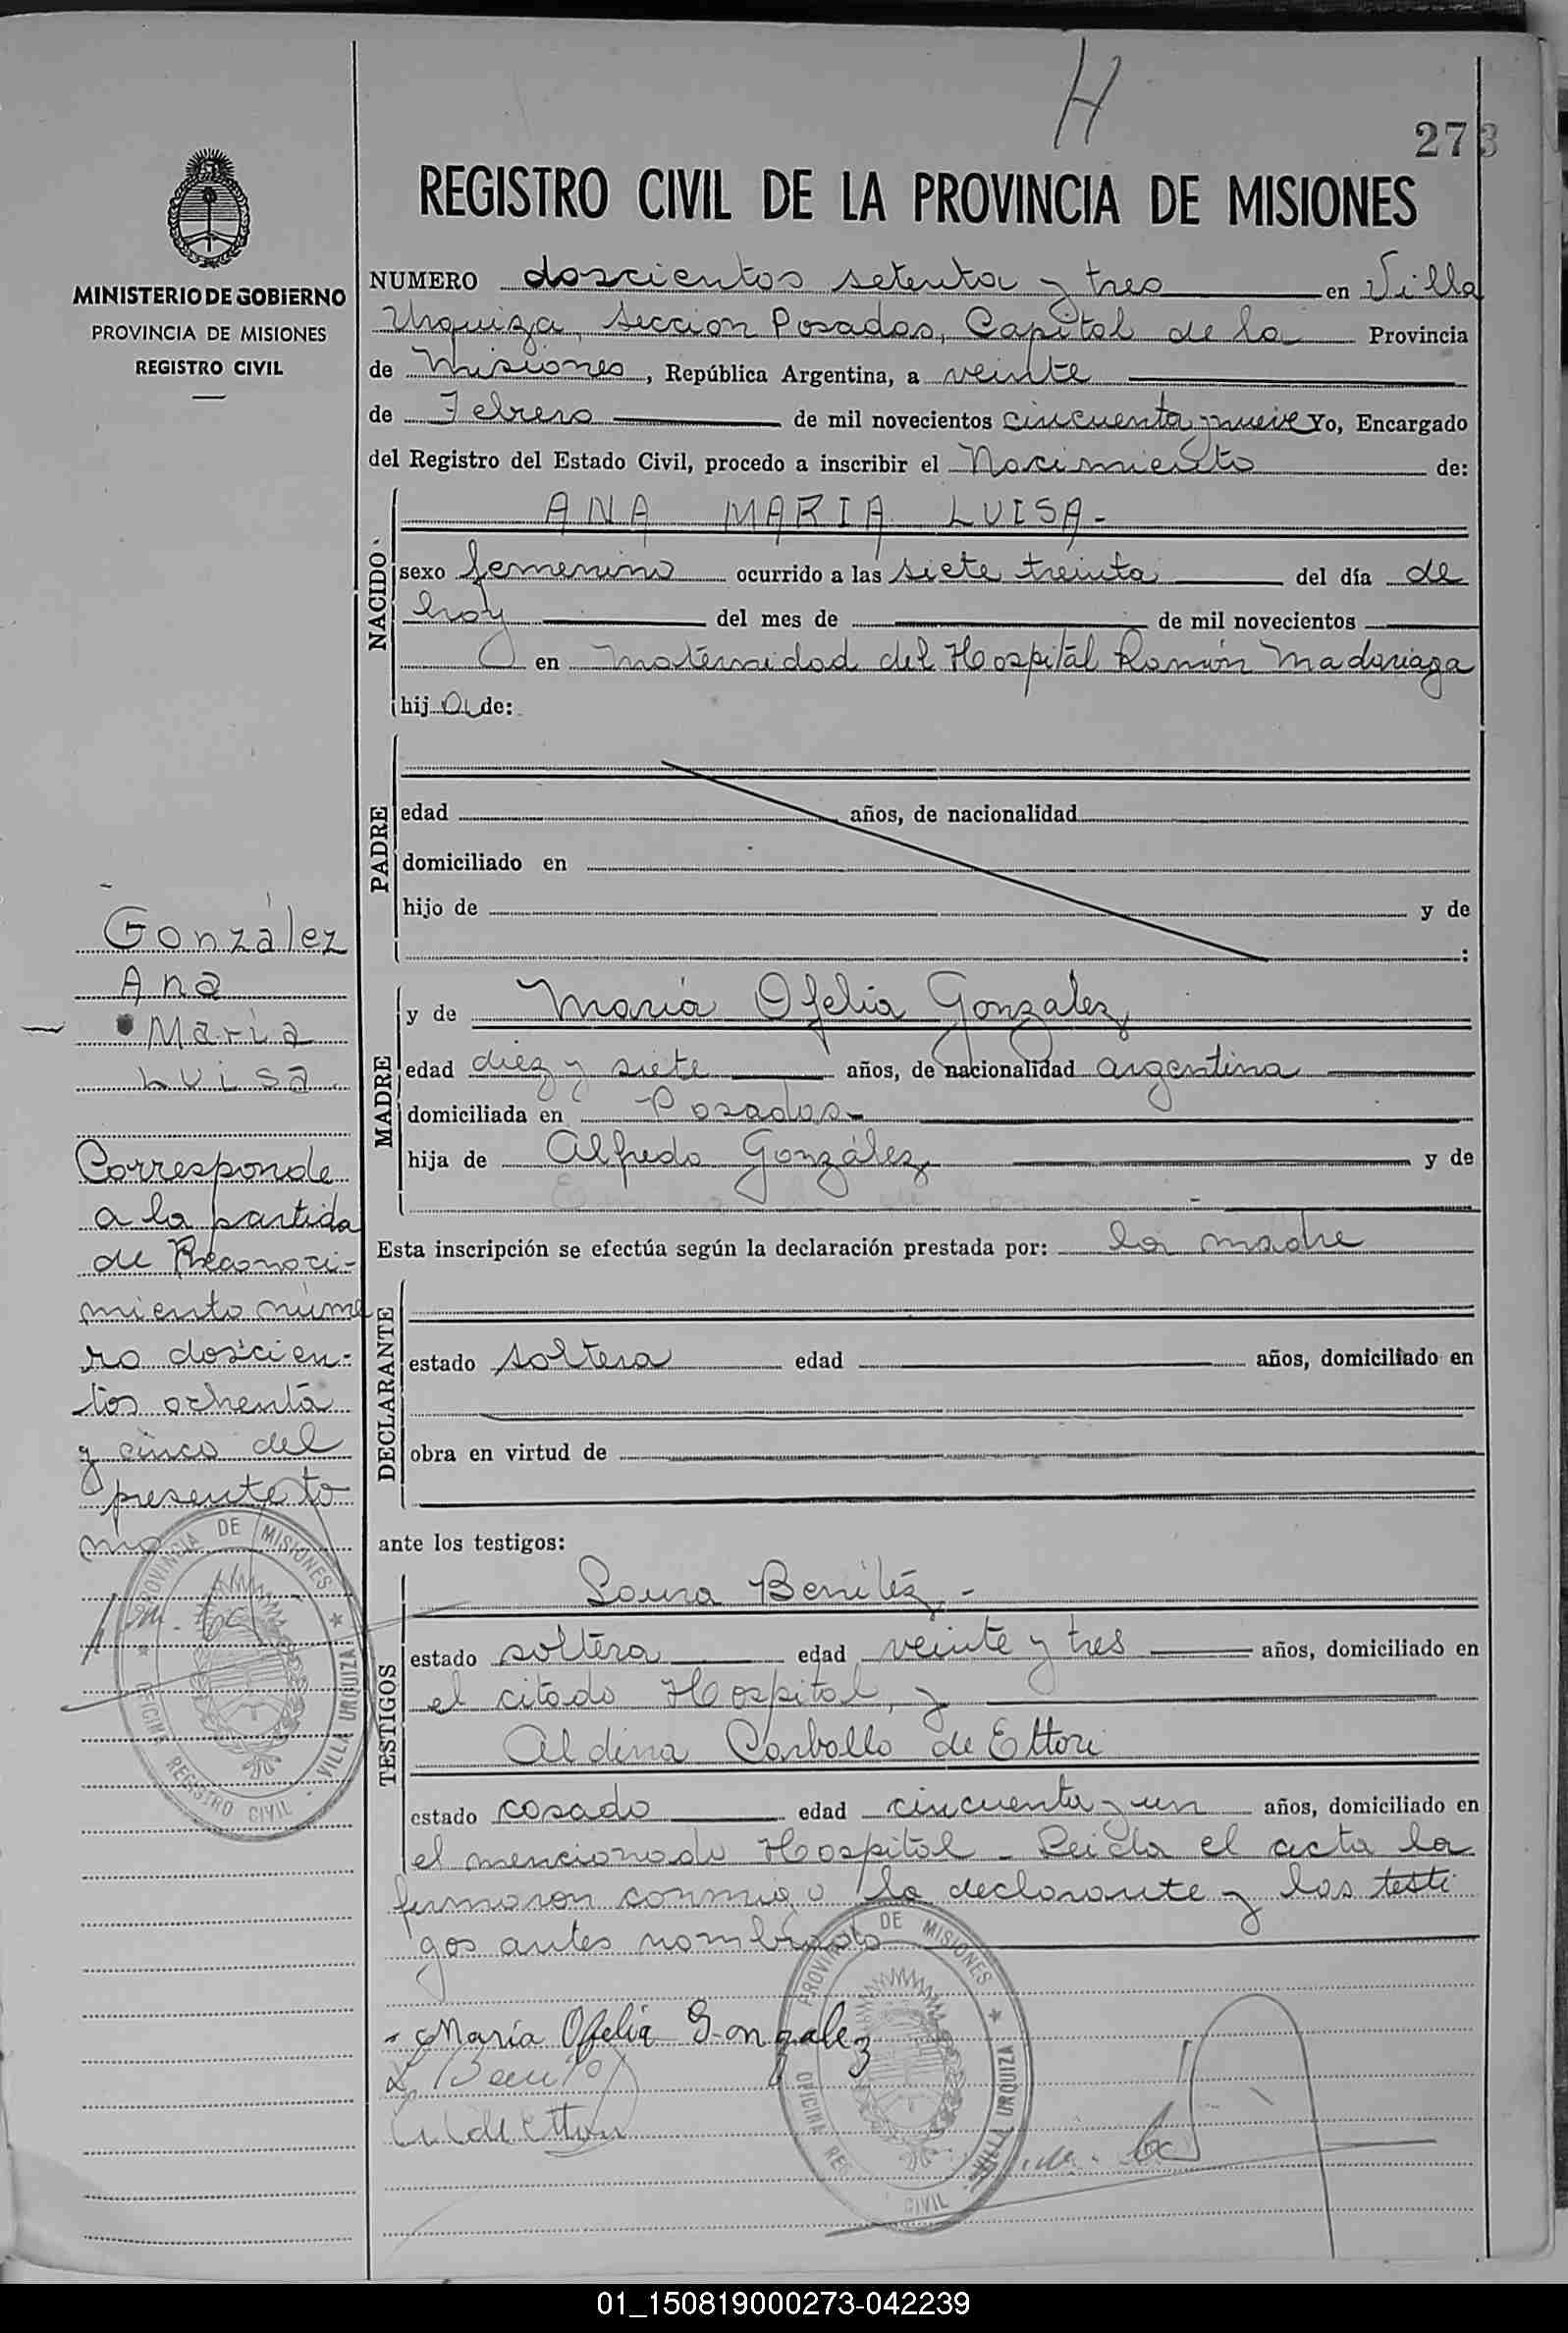 H
273
REGISTRO CIVIL DE LA PROVINCIA DE MISIONES
MINISTERIO DE GOBIERNO
PROVINCIA DE MISIONES
REGISTRO CIVIL
NUMERO doscientos setenta y tres en Villa
Urquiza, Sección Posadas, Capital de la Provincia
de Misiones, República Argentina, a veinte
de Febrero de mil novecientos cincuenta y nueve Yo, Encargado
del Registro del Estado Civil, procedo a inscribir el Nacimiento de:
NACIDO
ANA MARIA LUISA-
sexo femenino ocurrido a las siete treinta del día de
hoy del mes de de mil novecientos
en Maternidad del Hospital Ramón Madariaga
hija de:
PADRE
edad años, de nacionalidad
domiciliado en
hijo de y de
:
MADRE
y de María Ofelia Gonzalez
edad diez y siete años, de nacionalidad argentina
domiciliada en Posadas-
hija de Alfredo González y de
Esta inscripción se efectúa según la declaración prestada por: la madre
DECLARANTE
estado soltera edad años, domiciliado en
obra en virtud de
ante los testigos:
TESTIGOS
Laura Benítez -
estado soltera edad veinte y tres años, domiciliado en
el citado Hospital, y
Aldina Carballo de Ettori
estado casado edad cincuenta y un años, domiciliado en
el mencionado Hospital - Leída el acta la
firmaron conmigo la declarante y los testi
gos antes nombrado
María Ofelia Gonzalez
González
Ana
María
Luisa
Corresponde
a la partida
de Reconoci-
miento núme
ro doscien-
tos ochenta
y cinco del
presente to
mo
PROVINCIA DE MISIONES
OFICINA REGISTRO CIVIL - VILLA URQUIZA
PROVINCIA DE MISIONES
OFICINA REG CIVIL VILLA URQUIZA
01_150819000273-042239